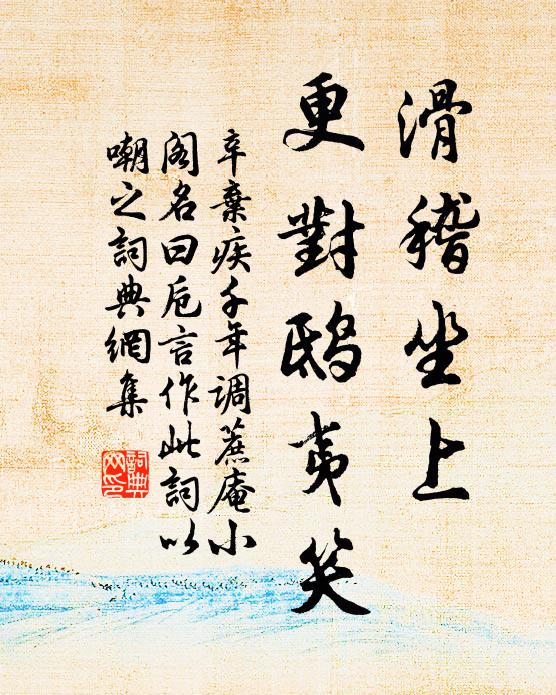 滑稽坐上
更對鴟夷笑
辛棄疾千年調蔗庵小
閣名曰卮言作此詞以
嘲之詞典網集
詞典
网印